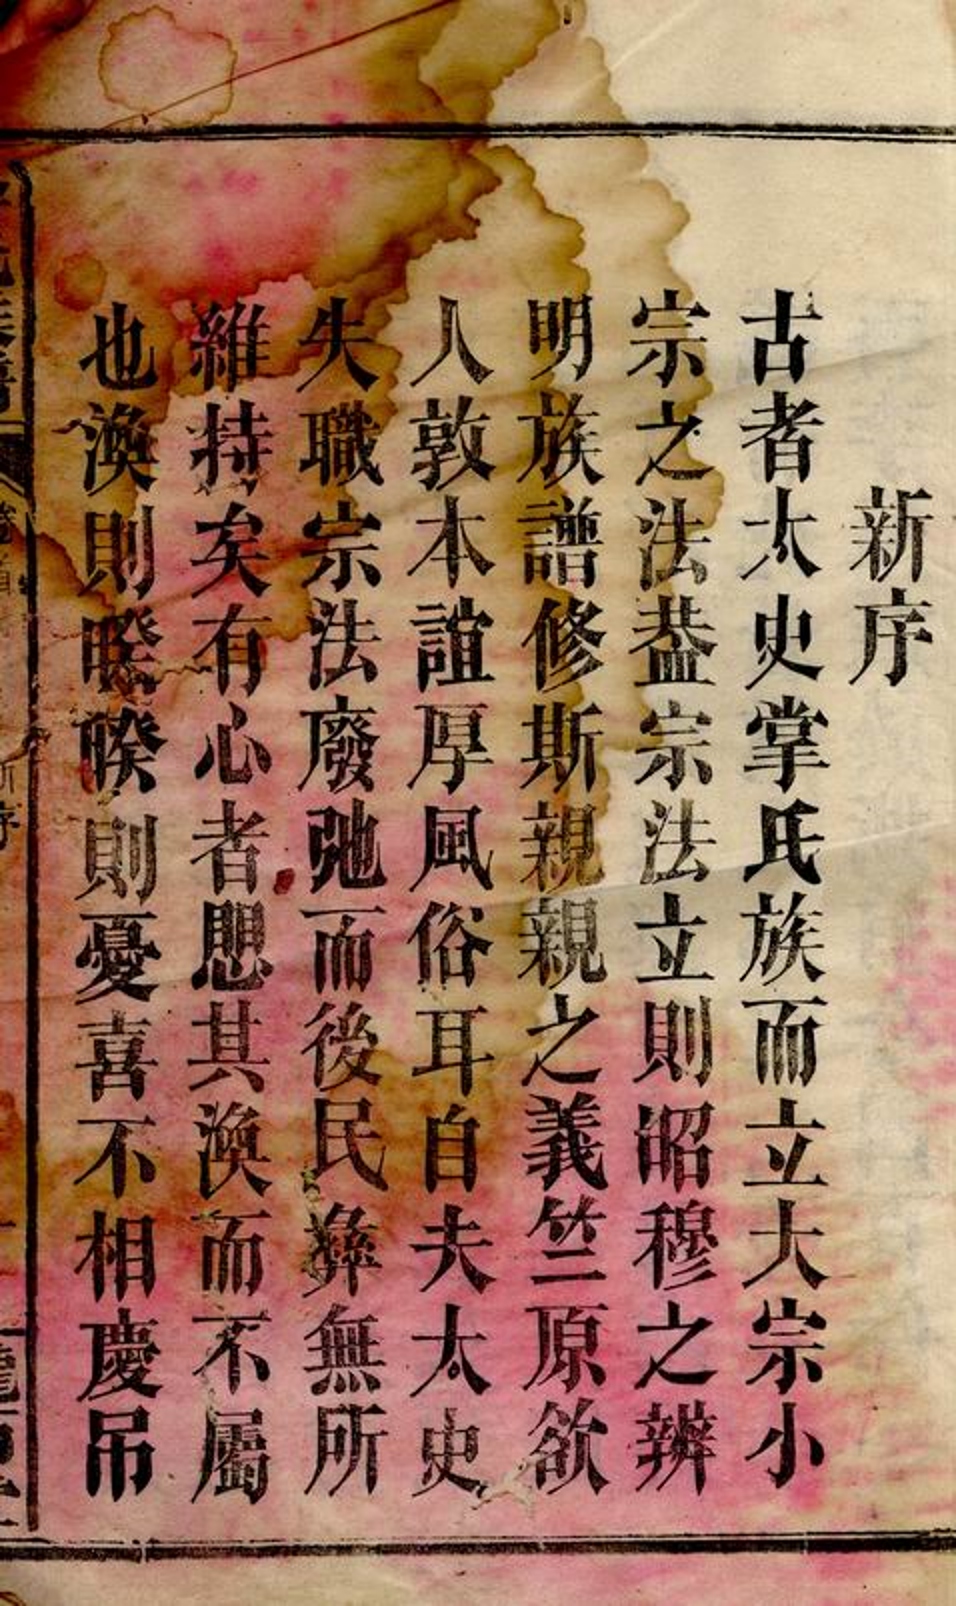 新序
古者太史掌氏族而立大宗小
宗之法葢宗法立則昭穆之辨
明族譜修斯親親之義竺原欲
人敦本誼厚風俗耳自夫太史
失職宗法廢弛而後民彝無所
維持矣有心者愳其渙而不屬
也渙則暌暌則憂喜不相慶吊